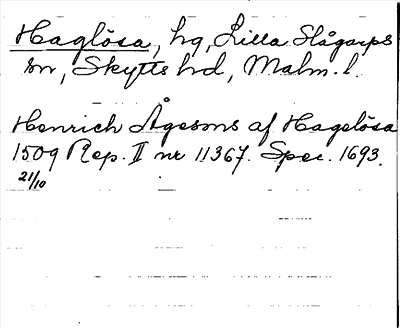 Haglösa, hg, Lilla Slågarps
sn, Skytts hd, Malm. l.
Henrich Ågesons af Hagelösa
1509 Rep. II nr 11367. Spec. 1693.
21/10